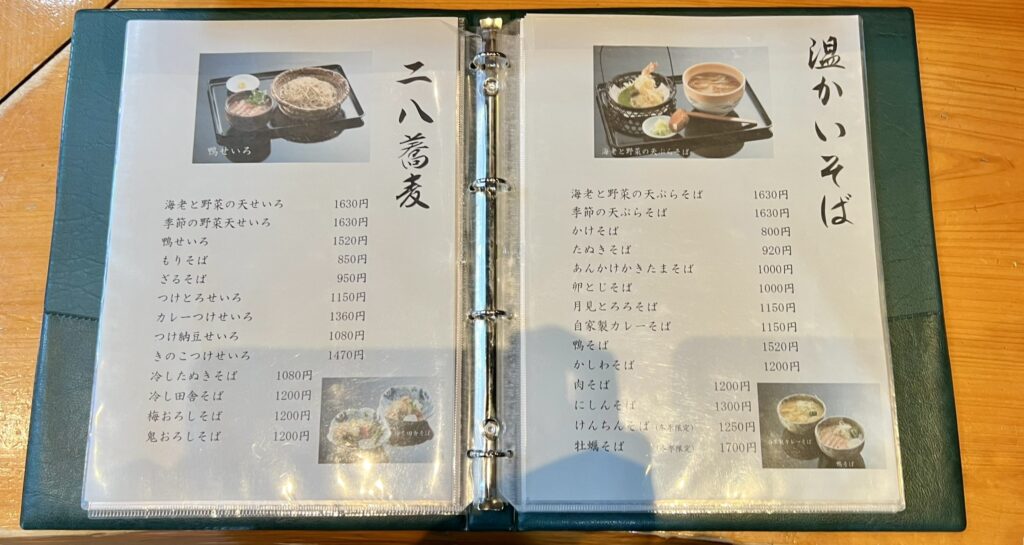 二八蕎麦
鴨せいろ
海老と野菜の天せいろ 1630円
季節の野菜天せいろ 1630円
鴨せいろ 1520円
もりそば 850円
ざるそば 950円
つけとろせいろ 1150円
カレーつけせいろ 1360円
つけ納豆せいろ 1080円
きのこつけせいろ 1470円
冷したぬきそば 1080円
冷し田舎そば 1200円
梅おろしそば 1200円
鬼おろしそば 1200円
冷し田舎そば
温かいそば
海老と野菜の天ぷらそば
海老と野菜の天ぷらそば 1630円
季節の天ぷらそば 1630円
かけそば 800円
たぬきそば 920円
あんかけかきたまそば 1000円
卵とじそば 1000円
月見とろろそば 1150円
自家製カレーそば 1150円
鴨そば 1520円
かしわそば 1200円
肉そば 1200円
にしんそば 1300円
けんちんそば (冬季限定) 1250円
牡蠣そば (冬季限定) 1700円
自家製カレーそば
鴨そば